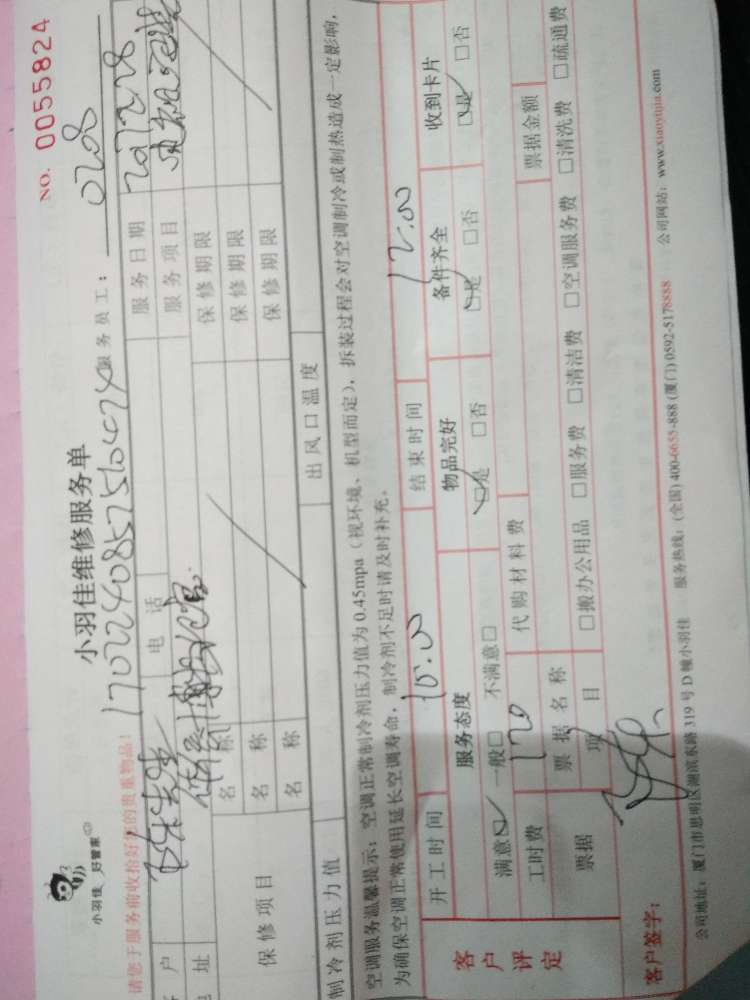 NO. 0055824
小羽佳 好管家
小羽佳维修服务单
服务员工: 0208
请您于服务前收拾好您的贵重物品!
户 电话 服务日期
址 服务项目
保修项目 名称 保修期限
名称 保修期限
名称 保修期限
制冷剂压力值 出风口温度
空调服务温馨提示:空调正常制冷剂压力值为0.45mpa(视环境、机型而定),拆装过程会对空调制冷或制热造成一定影响,
为确保空调正常使用延长空调寿命,制冷剂不足时请及时补充。
客户评定 开工时间 10.00 结束时间 12.00
服务态度 物品完好 备件齐全 收到卡片
满意☑ 一般□ 不满意□ ☑是 □否 ☑是 □否 ☑是 □否
工时费 120 代购材料费
票据 票据名称 票据金额
项目 □搬办公用品 □服务费 □清洁费 □空调服务费 □清洗费 □疏通费
客户签字:
公司地址:厦门市思明区湖滨东路319号D幢小羽佳 服务热线:(全国)400-6655-888 (厦门)0592-5178888 公司网站:www.xiaoyujia.com